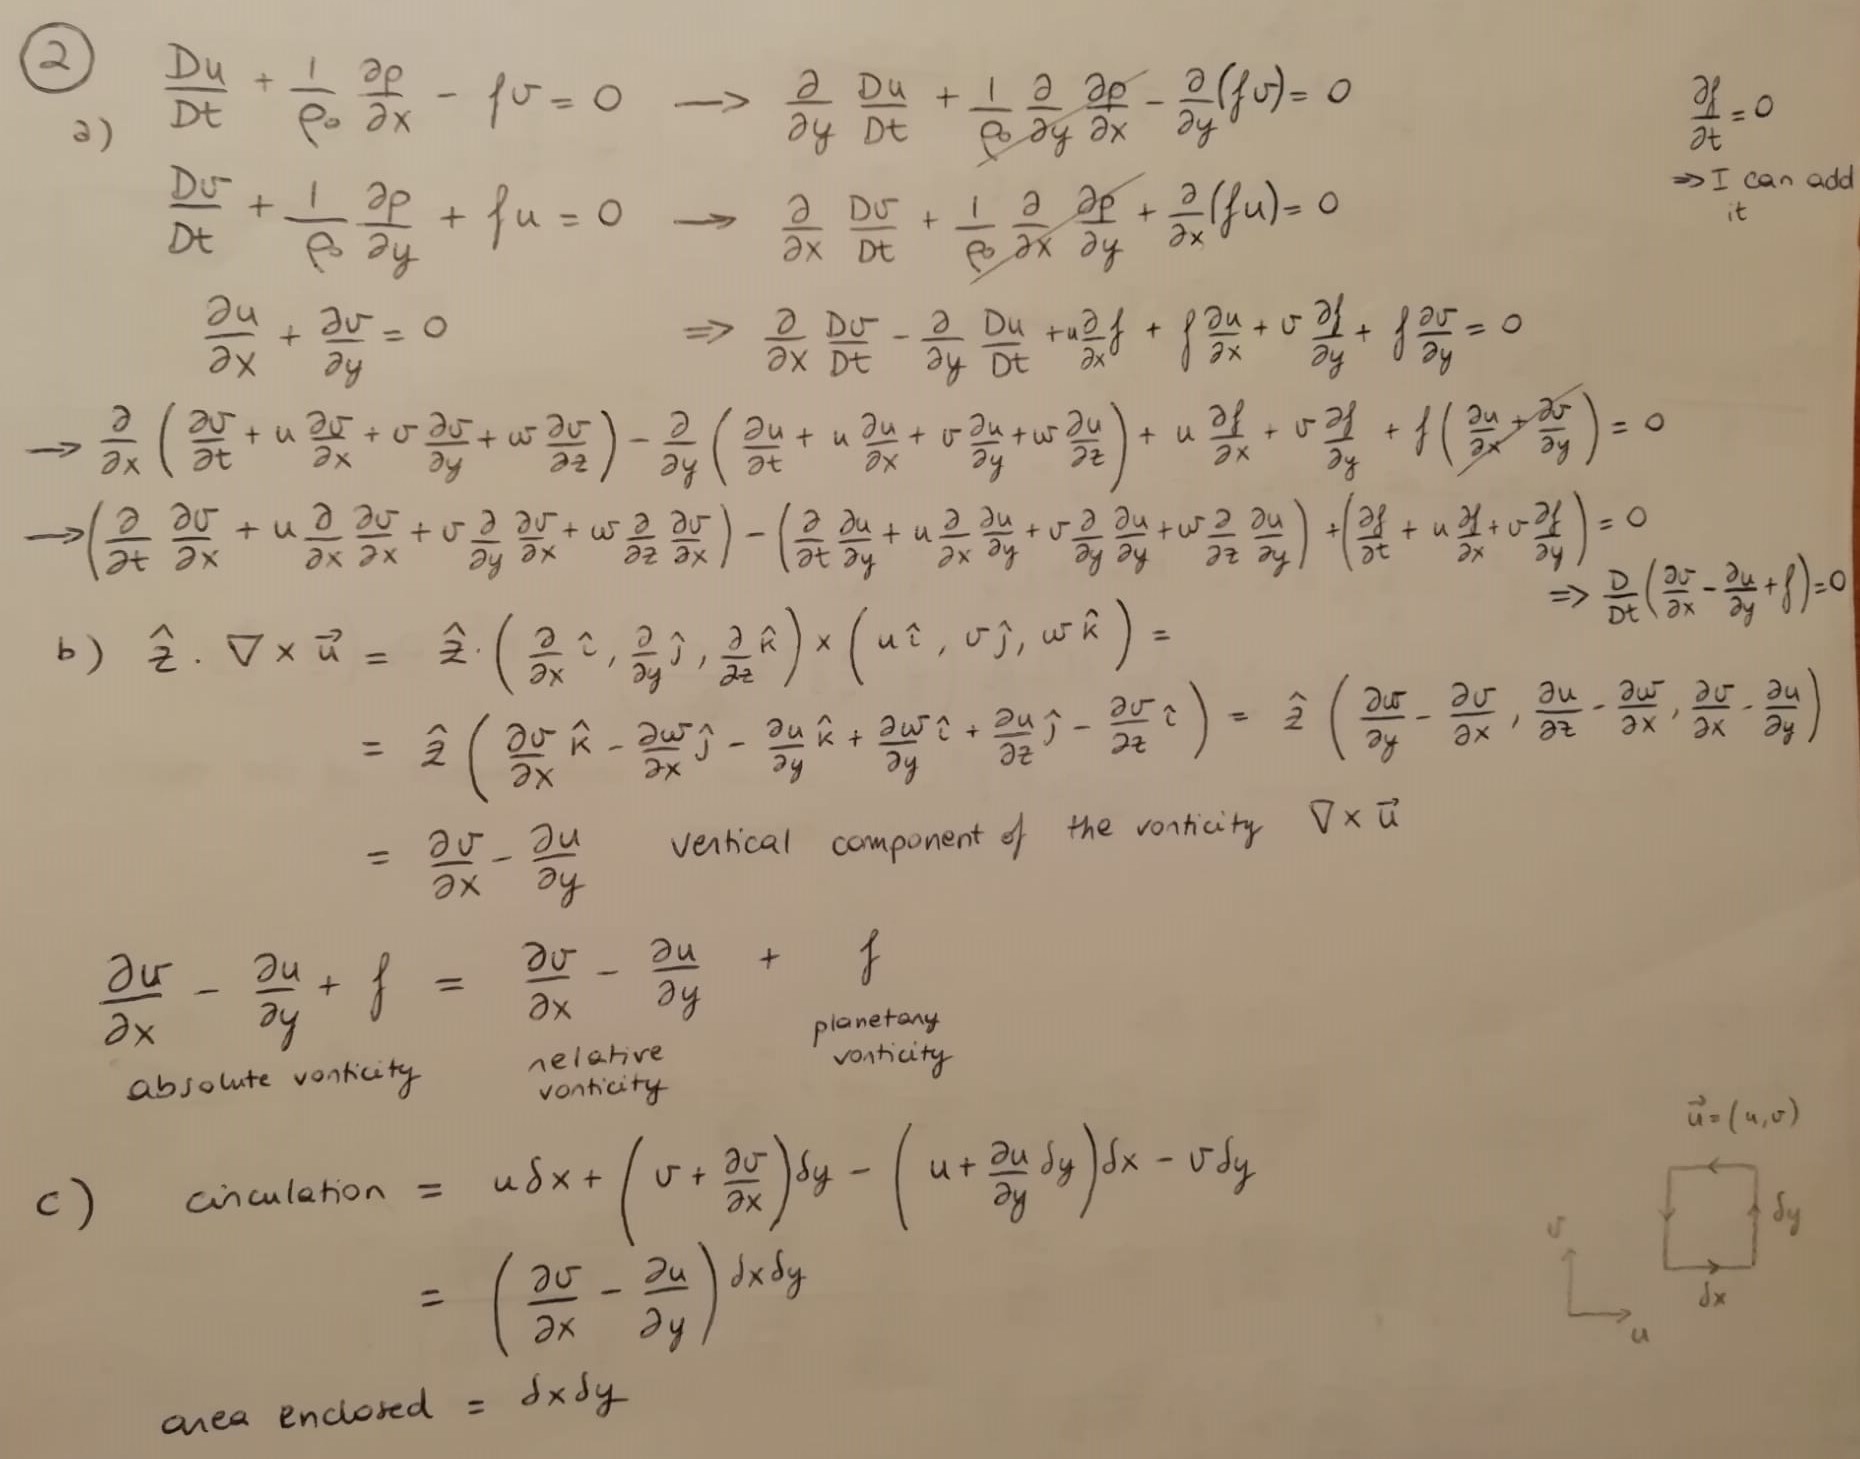 2
a) Du/Dt + 1/ρ₀ ∂p/∂x - fv = 0 → ∂/∂y Du/Dt + 1/ρ₀ ∂/∂y ∂p/∂x - ∂/∂y (fv) = 0
∂f/∂t = 0
⇒ I can add it
Dv/Dt + 1/ρ₀ ∂p/∂y + fu = 0 → ∂/∂x Dv/Dt + 1/ρ₀ ∂/∂x ∂p/∂y + ∂/∂x (fu) = 0
∂u/∂x + ∂v/∂y = 0 ⇒ ∂/∂x Dv/Dt - ∂/∂y Du/Dt + u ∂/∂x f + f ∂u/∂x + v ∂f/∂y + f ∂v/∂y = 0
→ ∂/∂x (∂v/∂t + u ∂v/∂x + v ∂v/∂y + w ∂v/∂z) - ∂/∂y (∂u/∂t + u ∂u/∂x + v ∂u/∂y + w ∂u/∂z) + u ∂f/∂x + v ∂f/∂y + f (∂u/∂x + ∂v/∂y) = 0
→ (∂/∂t ∂v/∂x + u ∂/∂x ∂v/∂x + v ∂/∂y ∂v/∂x + w ∂/∂z ∂v/∂x) - (∂/∂t ∂u/∂y + u ∂/∂x ∂u/∂y + v ∂/∂y ∂u/∂y + w ∂/∂z ∂u/∂y) + (∂f/∂t + u ∂f/∂x + v ∂f/∂y) = 0
⇒ D/Dt (∂v/∂x - ∂u/∂y + f) = 0
b) ẑ · ∇ × u⃗ = ẑ · (∂/∂x î, ∂/∂y ĵ, ∂/∂z k̂) × (u î, v ĵ, w k̂) =
= ẑ (∂v/∂x k̂ - ∂w/∂x ĵ - ∂u/∂y k̂ + ∂w/∂y î + ∂u/∂z ĵ - ∂v/∂z î) = ẑ (∂w/∂y - ∂v/∂x, ∂u/∂z - ∂w/∂x, ∂v/∂x - ∂u/∂y)
= ∂v/∂x - ∂u/∂y vertical component of the vorticity ∇ × u⃗
∂v/∂x - ∂u/∂y + f = ∂v/∂x - ∂u/∂y + f
absolute vorticity
relative vorticity
planetary vorticity
c) circulation = u δx + (v + ∂v/∂x) δy - (u + ∂u/∂y δy) δx - v δy
= (∂v/∂x - ∂u/∂y) δx δy
area enclosed = δx δy
u⃗ = (u, v)
δy
δx
v
u